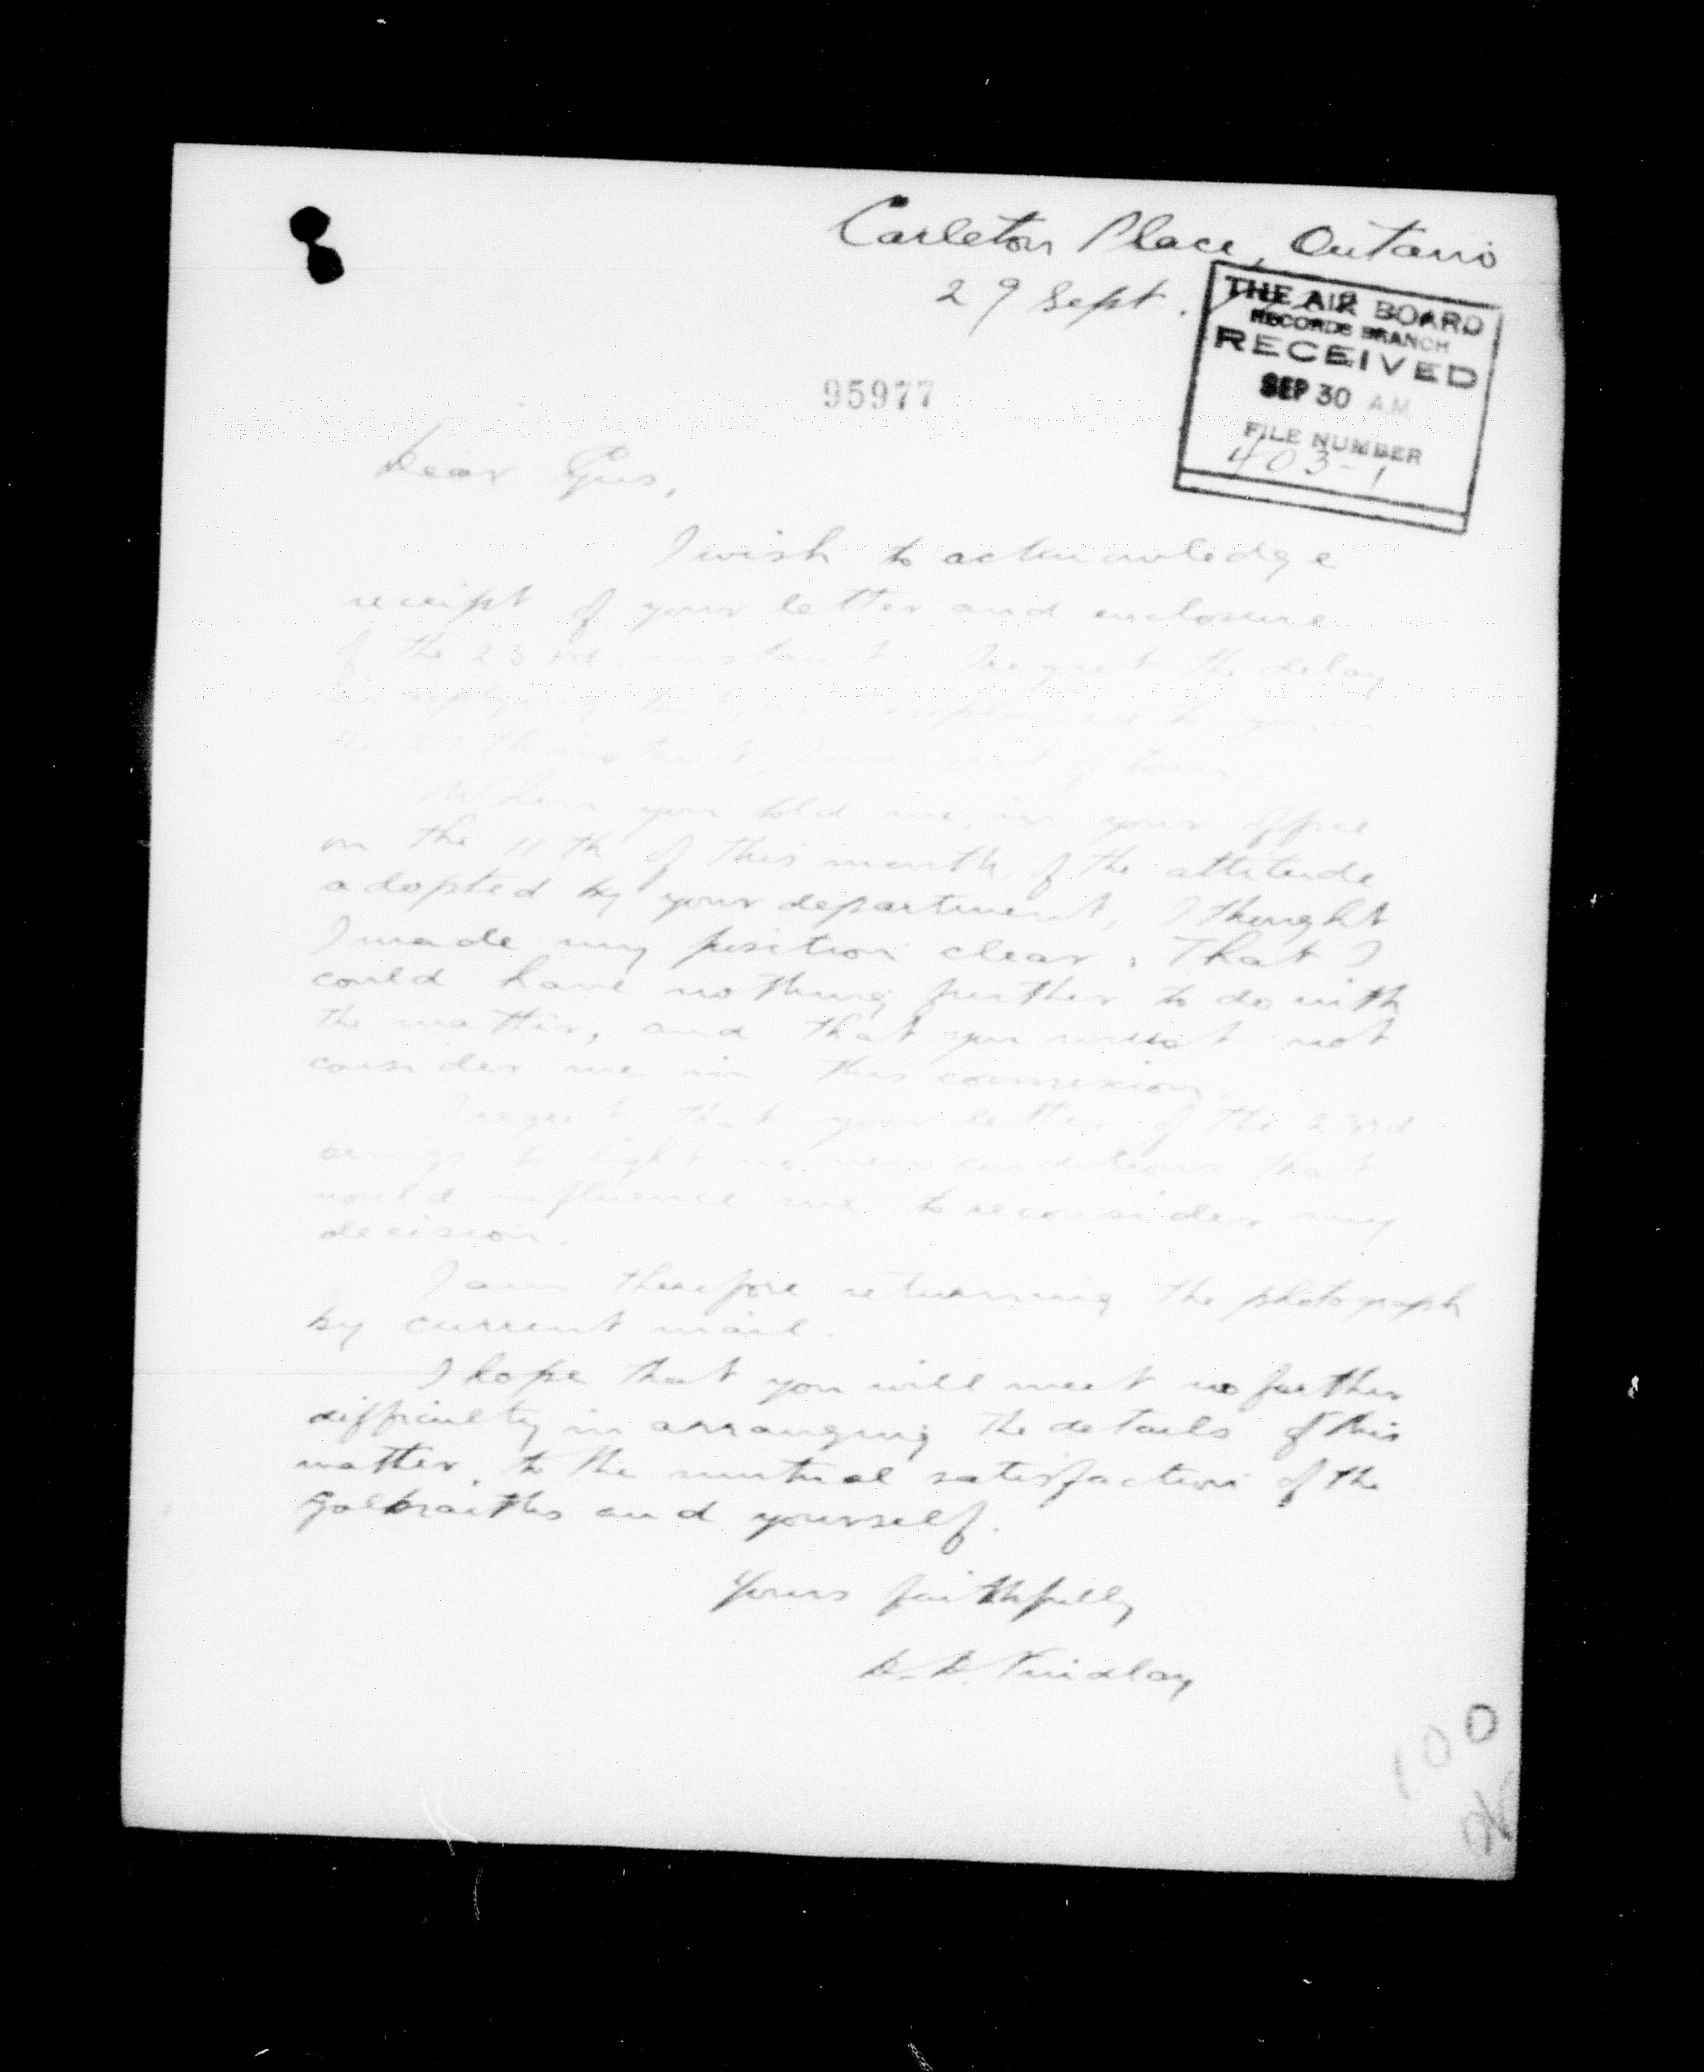 Carleton Place, Ontario
29 Sept.
THE AIR BOARD
RECORDS BRANCH
RECEIVED
SEP 30 A.M.
FILE NUMBER
403-1
95977
Dear Gus,
I wish to acknowledge
receipt of your letter and enclosure
of the 23rd instant. I regret the delay
in replying but, as I explained to you on
the 27th instant, I was out of town.
When you told me, in your office
on the 11th of this month, of the attitude
adopted by your department, I thought
I made my position clear. That I
could have nothing further to do with
the matter, and that you must not
consider me in this connexion.
I regret that your letter of the 23rd
brings to light no new conditions that
would influence me to reconsider my
decision.
I am therefore returning the photograph
by current mail.
I hope that you will meet no further
difficulty in arranging the details of this
matter, to the mutual satisfaction of the
Galbraiths and yourself.
Yours faithfully
D. D. Findlay
100